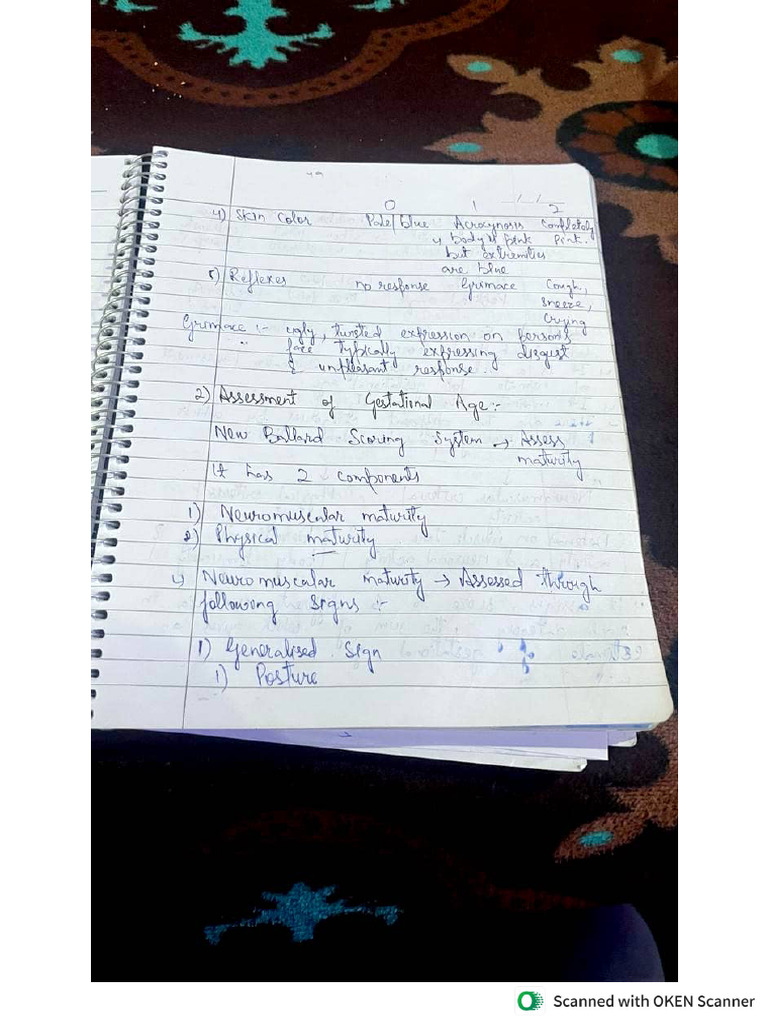 0 1 2
4) Skin Color Pale/blue Acrocynosis Completely
↳ body is pink Pink.
but extremities
are blue
5) Reflexes no response Grimace Cough,
sneeze,
Crying
Grimace :- ugly, twisted expression on persons
face typically expressing disgust
& unpleasant response.
2) Assessment of Gestational Age :-
New Ballard Scoring System → Assess
maturity
It has 2 components
1) Neuromuscular maturity
2) Physical maturity
↳ Neuromuscular maturity → Assessed through
following signs :-
1) Generalised Sign
1) Posture
Scanned with OKEN Scanner